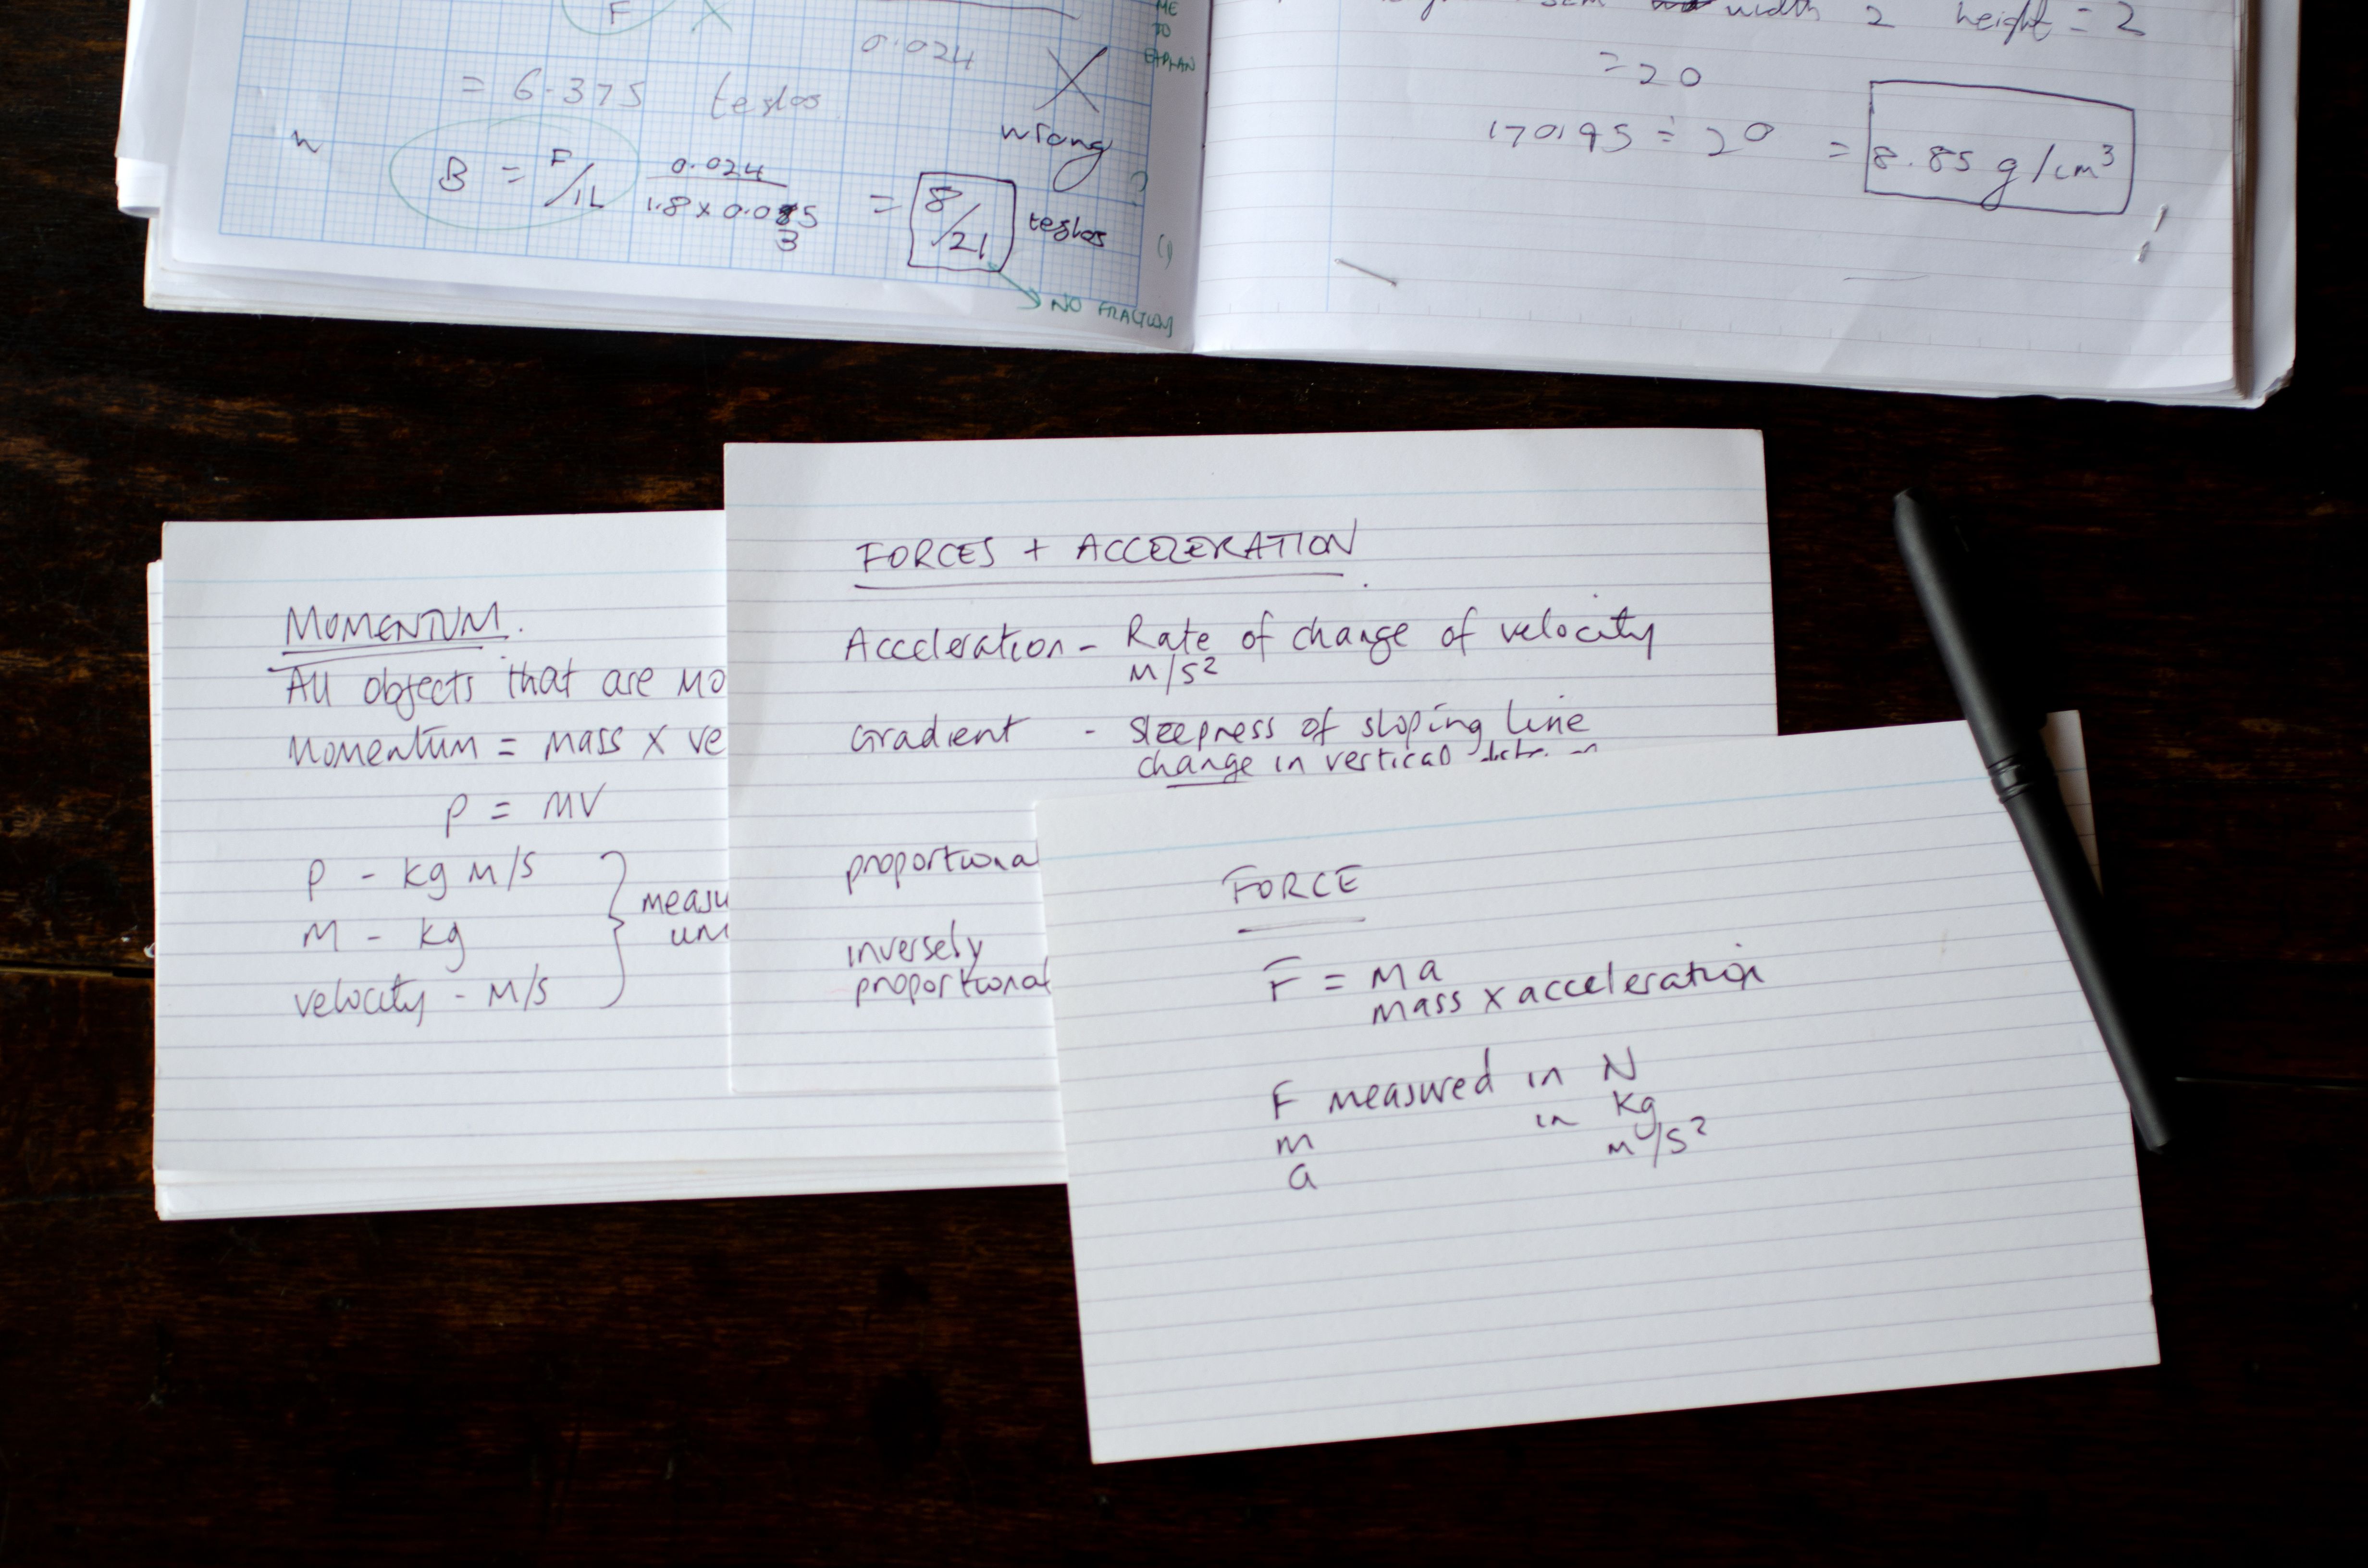 F
= 6.375 teslas
0.024
wrong
B = F/IL 0.024
1.8 x 0.035
3
= 8/21 teslas
NO FRACTIONS
ME
TO
EXPLAIN
width 2 height = 2
= 20
170.95 ÷ 20 = 8.85 g/cm³
MOMENTUM.
All objects that are mo
Momentum = mass x ve
p = MV
p - kg m/s
M - kg
velocity - m/s
measu
uni
FORCES + ACCELERATION
Acceleration - Rate of change of velocity
m/s²
Gradient - steepness of sloping line
change in vertical
proportional
inversely
proportional
FORCE
F = Ma
mass x acceleration
F measured in N
m in kg
a m/s²